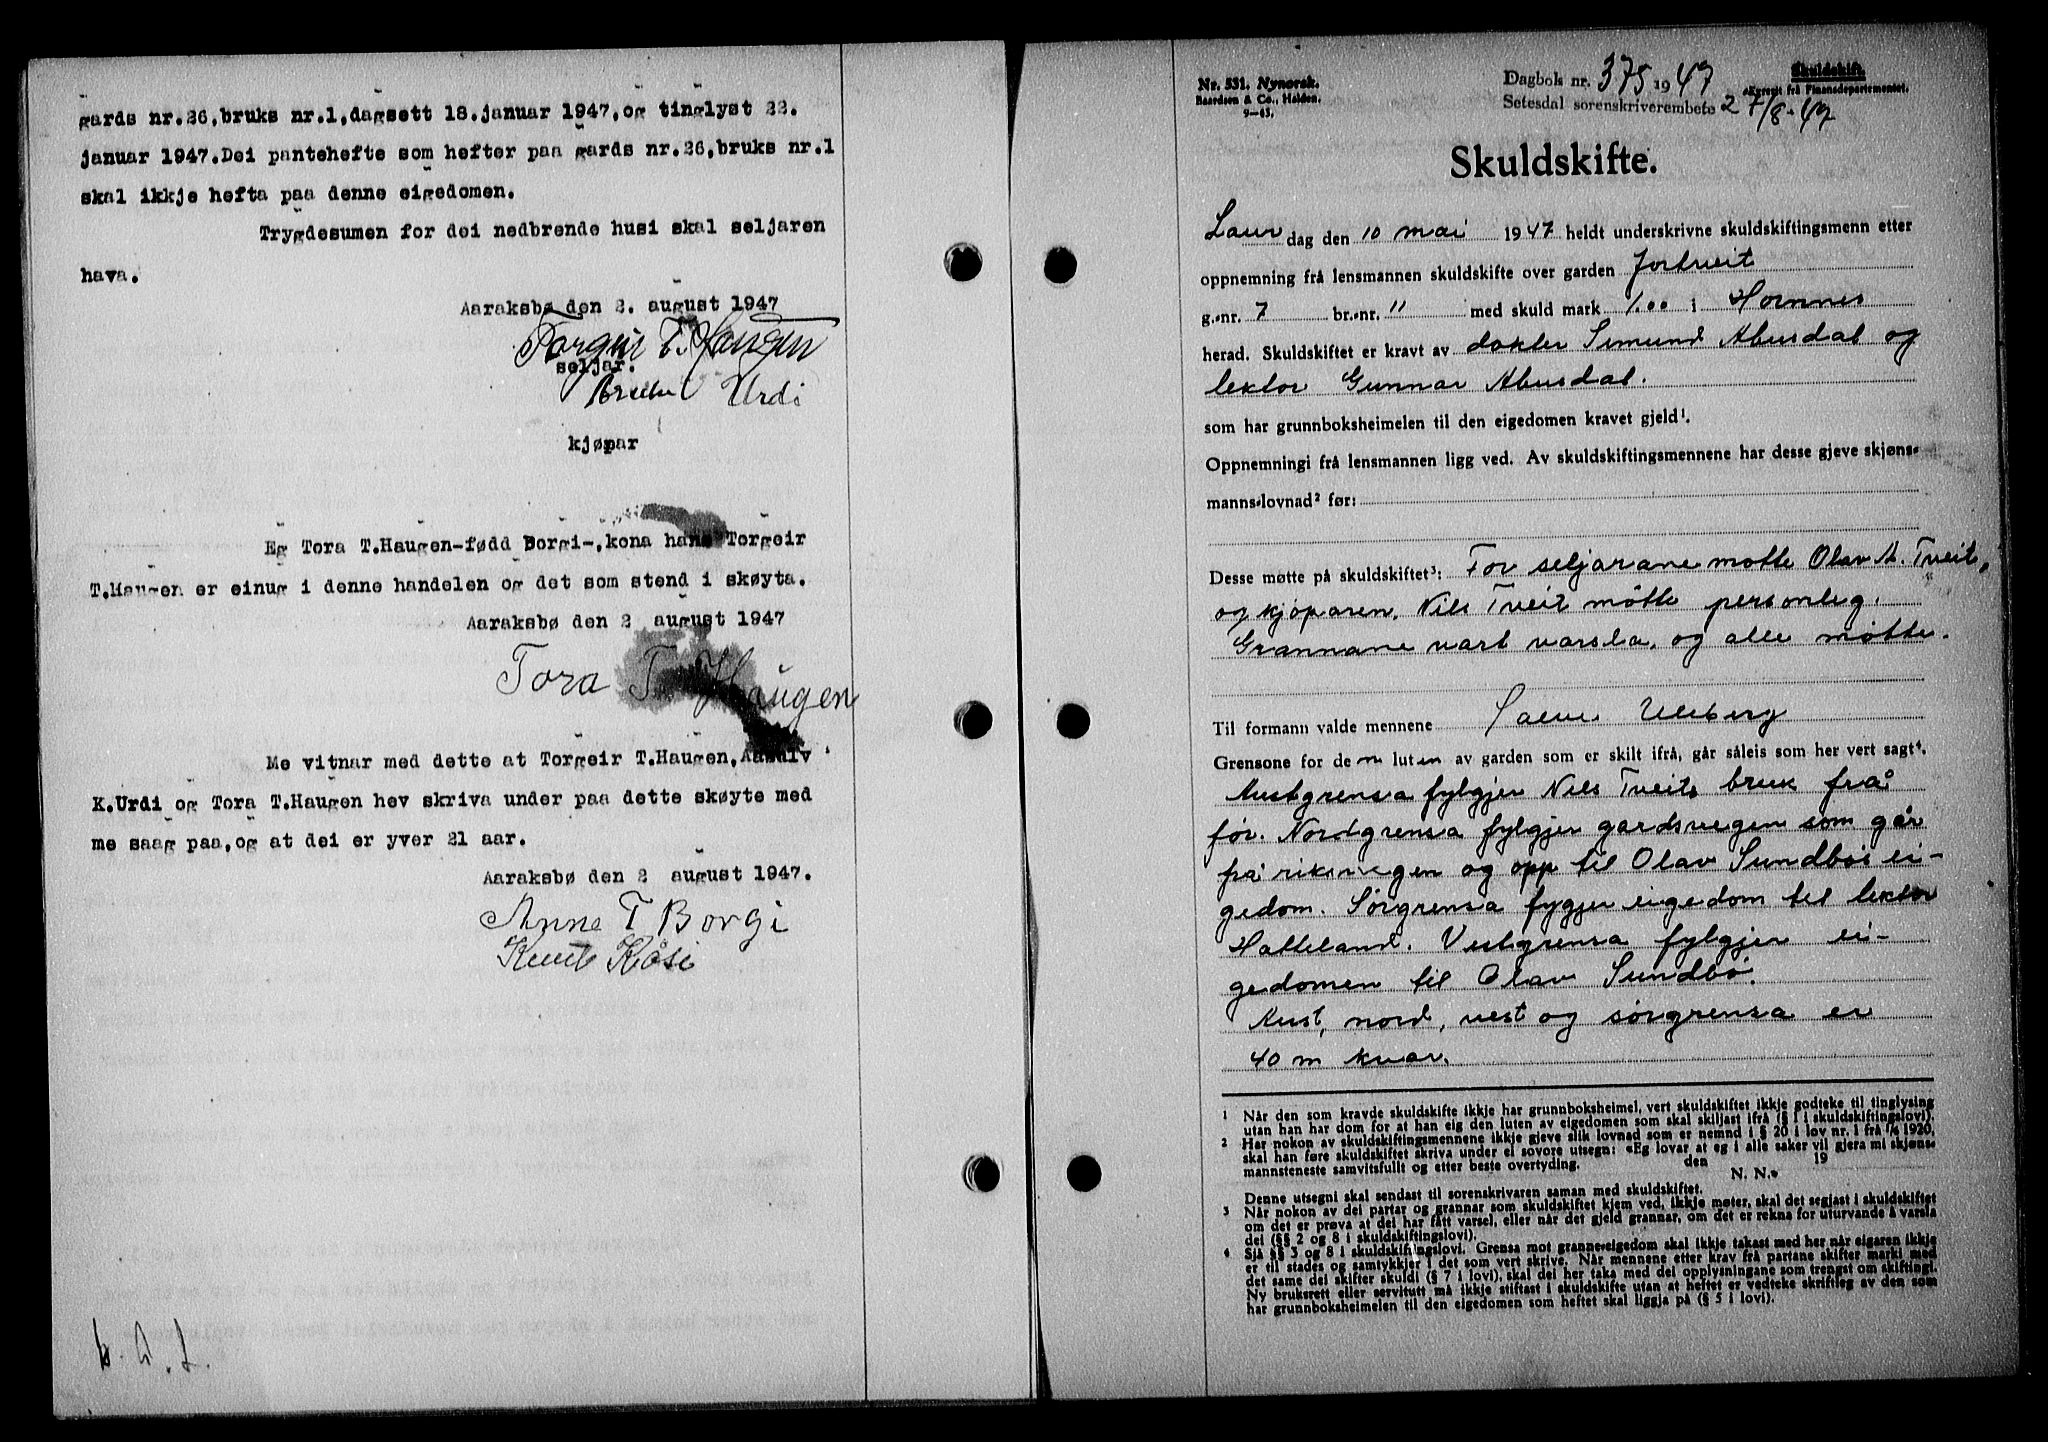 gards nr.26,bruks nr.1,dagsett 18.januar 1947,og tinglyst 22.
januar 1947.Dei pantehefte som hefter paa gards nr.26,bruks nr.1
skal ikkje hefta paa denne eigedomen.
Trygdesumen for dei nedbrende husi skal seljaren
hava.
Aaraksbø den 2. august 1947
Torgeir T. Haugen
seljar.
Urdi
kjøpar
Eg Tora T.Haugen-fødd Borgi-,kona hans Torgeir
T.Haugen er einug i denne handelen og det som stend i skøyta.
Aaraksbø den 2 august 1947
Tora T. Haugen
Me vitnar med dette at Torgeir T.Haugen,Aasulv
K.Urdi og Tora T.Haugen hev skriva under paa dette skøyte med
me saag paa,og at dei er yver 21 aar.
Aaraksbø den 2 august 1947.
Anne T Borgi
Knut Kåsi
Nr. 531. Nynorsk.
Baardsen & Co., Halden.
9—43.
Dagbok nr. 375 1947
Setesdal sorenskriverembete 27/8-47
Skuldskift.
Skuldskifte.
Laur dag den 10 mai 1947 heldt underskrivne skuldskiftingsmenn etter
oppnemning frå lensmannen skuldskifte over garden Jortveit
g.-nr. 7 br.-nr. 11 med skuld mark 1.00 i Hornnes
herad. Skuldskiftet er kravt av doktor Simund Abusdal og
lektor Gunnar Abusdal.
som har grunnboksheimelen til den eigedomen kravet gjeld¹.
Oppnemningi frå lensmannen ligg ved. Av skuldskiftingsmennene har desse gjeve skjøns-
manns-lovnad² før:
Desse møtte på skuldskiftet³: For seljarane møtte Olav A. Tveit,
og kjøparen, Nils Tveit møtte personleg.
Grannane vart varsla, og alle møtte.
Til formann valde mennene Salve Uleberg
Grensone for den luten av garden som er skilt ifrå, går såleis som her vert sagt⁴.
Austgrensa fylgjer Nils Tveits bruk frå
før. Nordgrensa fylgjer gardsvegen som går
frå riksvegen og opp til Olav Sundbøs ei-
gedom. Sørgrensa fygjer eigedom til lektor
Hatteland. Vestgrensa fylgjer ei-
gedomen til Olav Sundbø.
Aust, nord, vest og sørgrensa er
40 m kvar.
1 Når den som kravde skuldskifte ikkje har grunnboksheimel, vert skuldskiftet ikkje godteke til tinglysing
utan han har dom for at han eig den luten av eigedomen som skal skiljast ifrå (§ 1 i skuldskiftingslovi).
2 Har nokon av skuldskiftingsmennene ikkje gjeve slik lovnad som er nemnd i § 20 i lov nr. 1 frå 1/6 1920,
skal han føre skuldskiftet skriva under ei sovore utsegn: «Eg lovar at eg i alle saker vil gjera mi skjøns-
mannsteneste samvitsfullt og etter beste overtyding. den 19
N. N.»
Denne utsegni skal sendast til sorenskrivaren saman med skuldskiftet.
3 Når nokon av dei partar og grannar som skuldskiftet kjem ved, ikkje møter, skal det segjast i skuldskiftet
om det er prøva at dei har fått varsel, eller når det gjeld grannar, om det er rekna for uturvande å varsla
dei (§§ 2 og 8 i skuldskiftingslovi).
4 Sjå §§ 3 og 8 i skuldskiftingslovi. Grensa mot granne-eigedom skal ikkje takast med her når eigaren ikkje
er til stades og samtykkjer i det som vert skrive. Når mennene etter krav frå partane skifter marki med
det same dei skifter skuldi (§ 7 i lovi), skal dei her taka med dei opplysningane som trengst om skiftingi.
Ny bruksrett eller servitutt må ikkje stiftast i skuldskifte utan at heftet er vedteke skriftleg av den som
har grunnboksheimelen til den eigedomen som heftet skal liggja på (§ 5 i lovi).